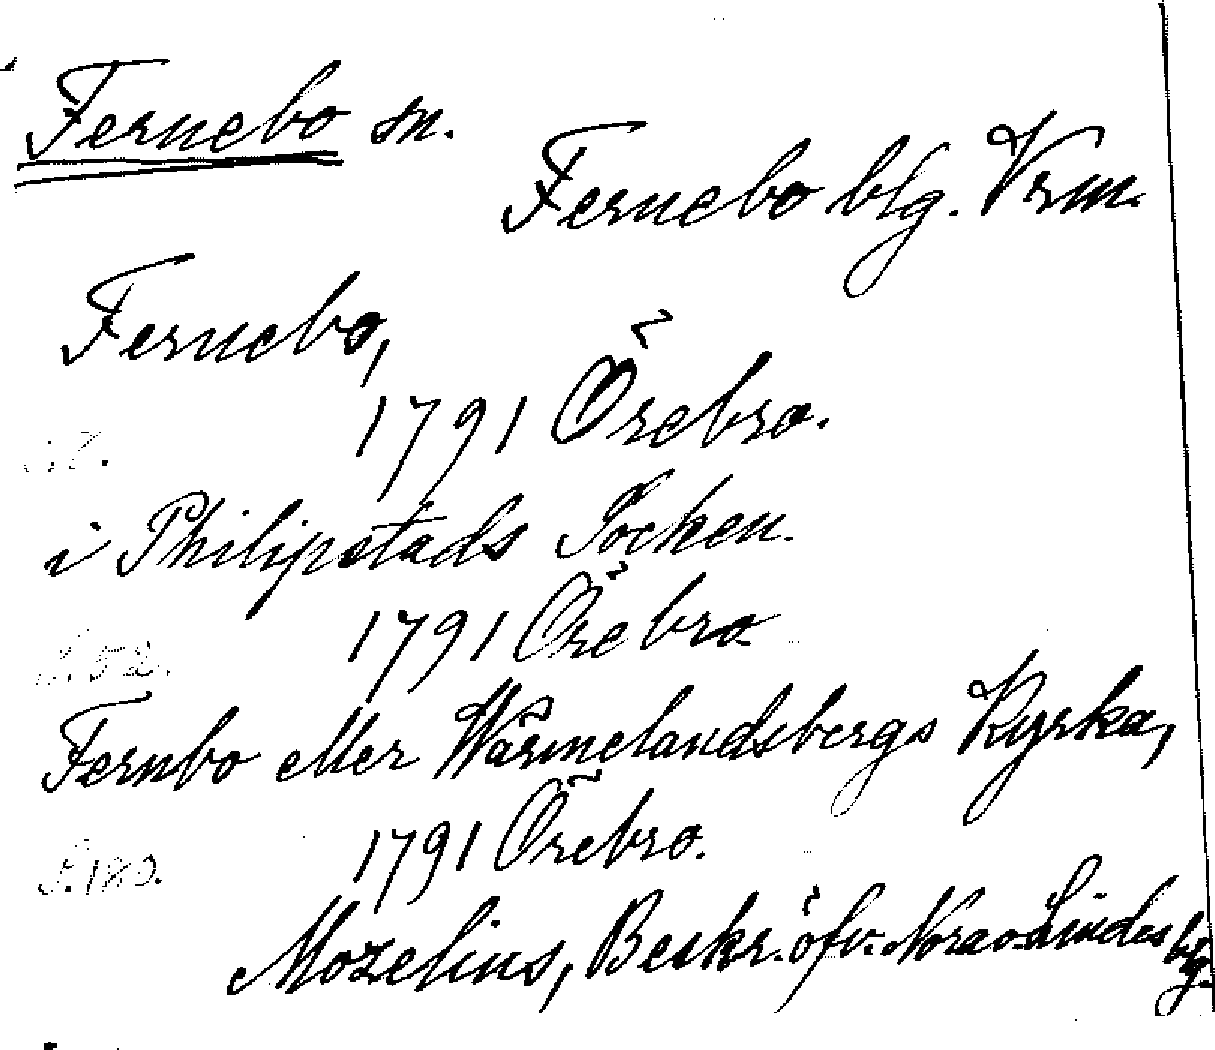 Fernebo sn.
Fernebo blg. Vrm.
Fernebo,
1791 Örebro.
i Philipstads Socken.
1791 Örebro
S. 52.
Fernbo eller Wärmelandsbergs Kyrka,
1791 Örebro.
S. 180.
Mozelius, Beskr. öfv. Nora o. Lindes blg.